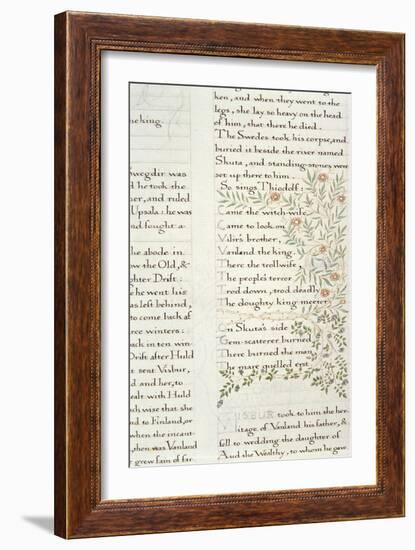 he king.
Swegdir was
d he took the
er, and ruled
Upsala: he was
nd fought a
he abode in
ow the Old, &
ghter Drift:
he went his
as left behind,
to come back af
ree winters:
back in ten win
Drift after Huld
t sent Visbur,
d and her, to
ealt with Huld
ch wise that she
nd to Finland, or
when the incant
, then was Vanland
r grew fain of far
ken, and when they went to the
legs, she lay so heavy on the head
of him, that there he died.
The Swedes took his corpse, and
buried it beside the river named
Shuta, and standing-stones were
set up there to him.
So sings Thiodolf:
Came the witch-wife
Came to look on
Vilir's brother,
Vanland the king.
There the trollwife,
The people's terror
Trod down, trod deadly
The doughty king-meeter
On Skuta's side
Gem-scatterer burned
There burned the man
The mare quelled erst.
VISBUR took to him the her
itage of Vanland his father, &
fell to wedding the daughter of
Aud the Wealthy, to whom he gave